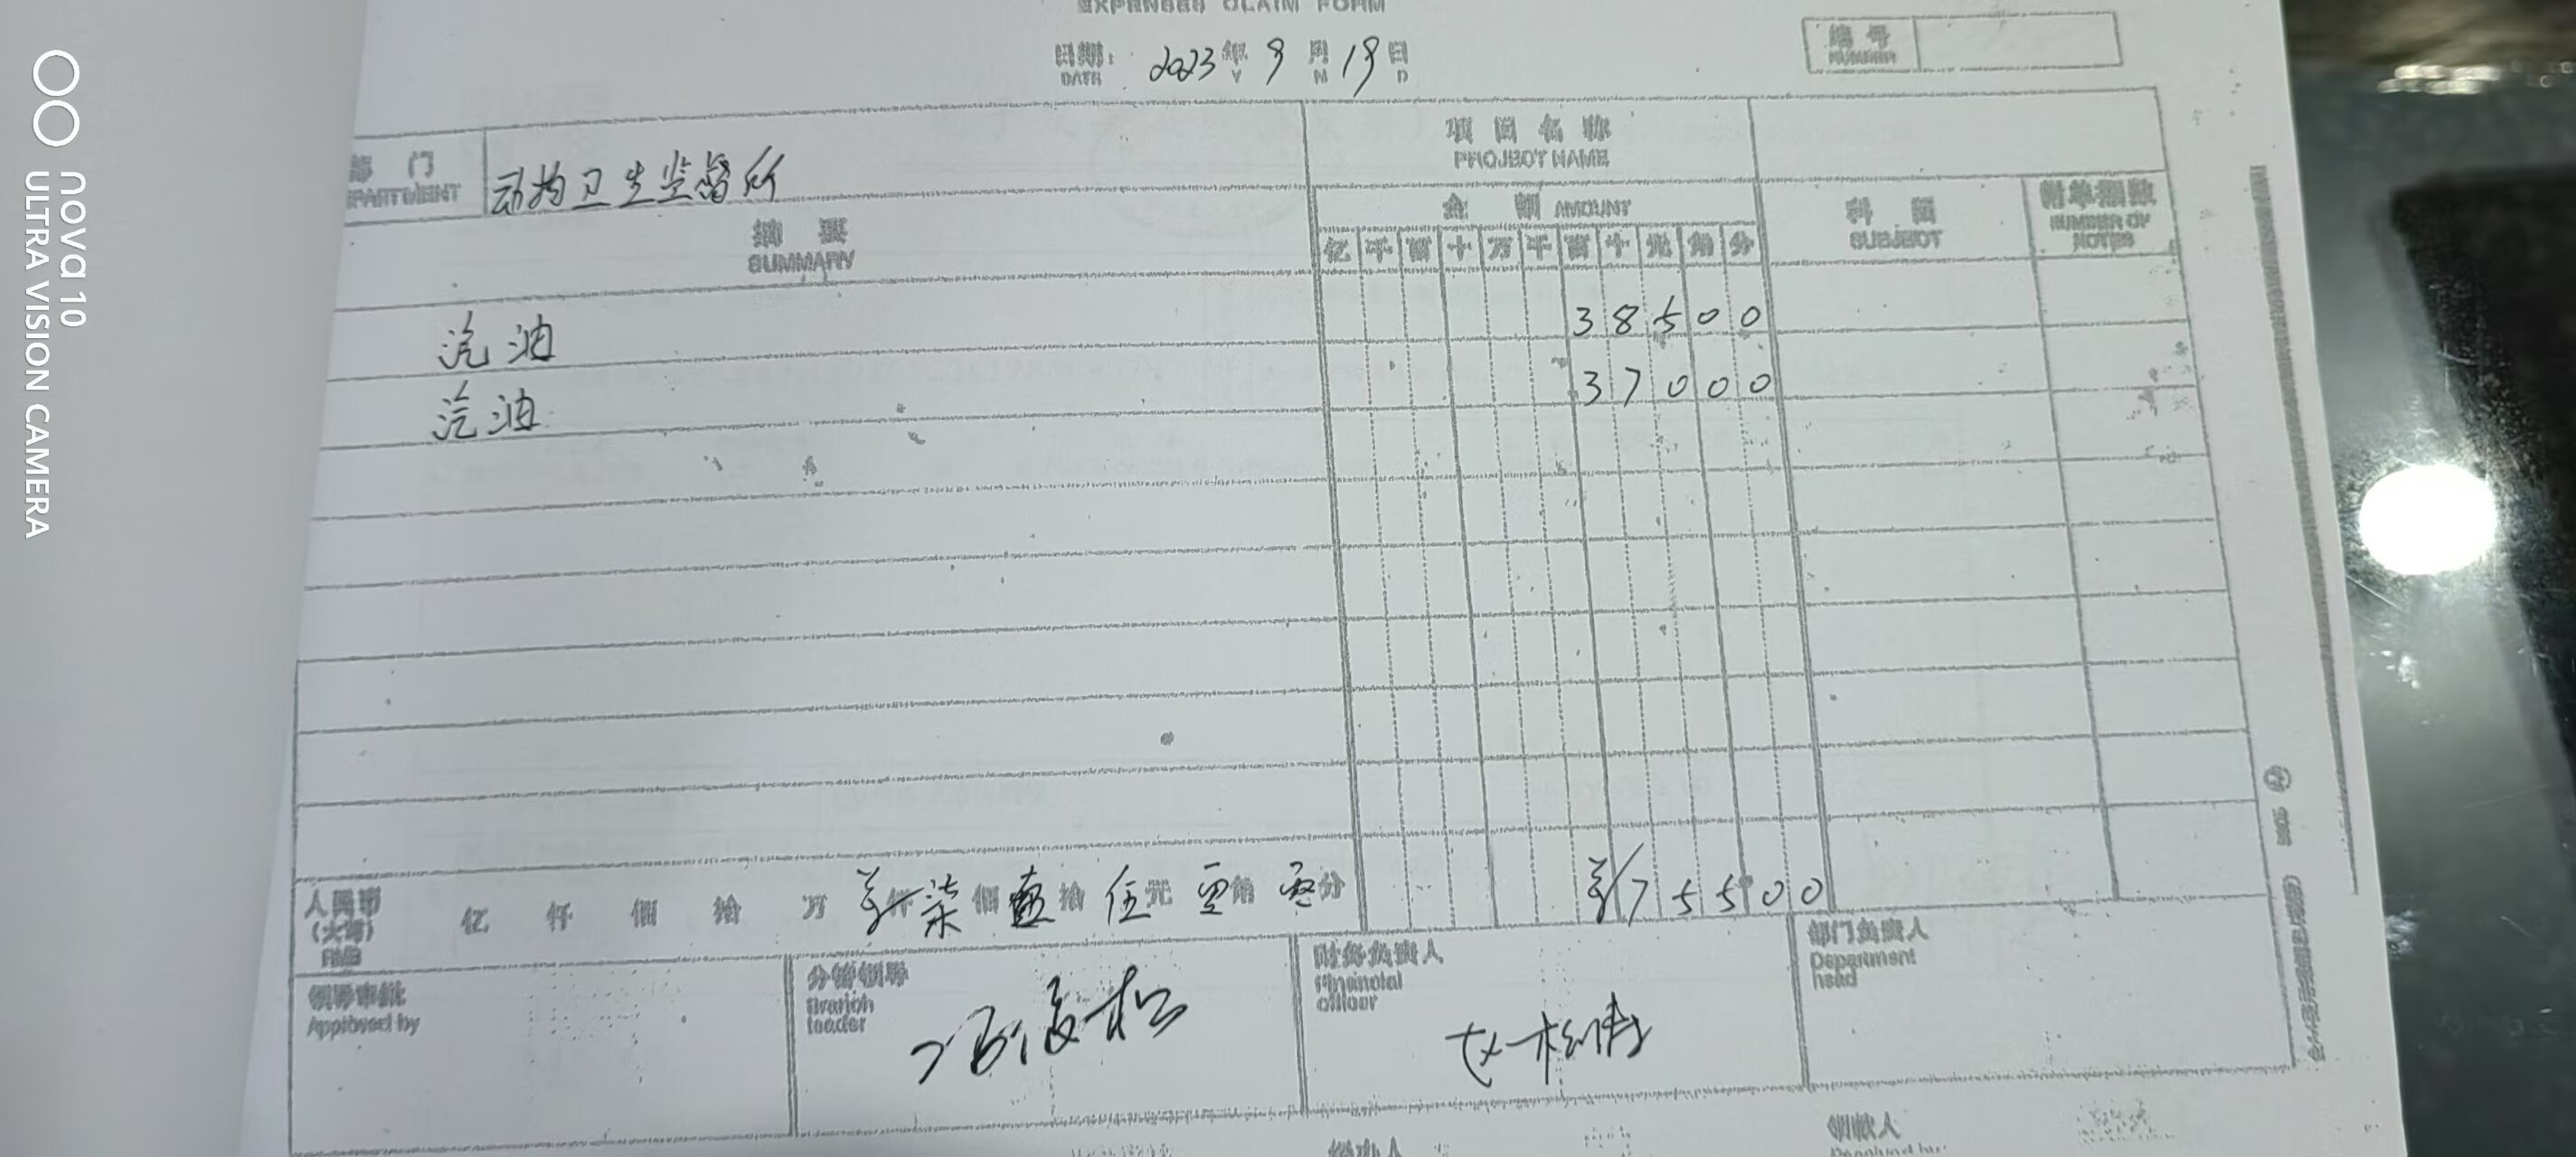 EXPENSES CLAIM FORM
日期: 2023 年 9 月 19 日
DATE Y M D
编号
NUMBER
部门 动物卫生监督所
DEPARTMENT
项目名称
PROJECT NAME
摘要
SUMMARY
金额 AMOUNT
亿 千 百 十 万 千 百 十 元 角 分
科目
SUBJECT
附单据数
NUMBER OF NOTES
汽油 38500
汽油 37000
人民币
(大写)
RMB
亿 仟 佰 拾 万 仟 柒 佰 伍 拾 伍 元 零 角 零 分 ¥75500
领导审批
Approved by
分管领导
Branch leader
财务负责人
Financial officer
部门负责人
Department head
经办人
领款人
Received by
nova 10
ULTRA VISION CAMERA